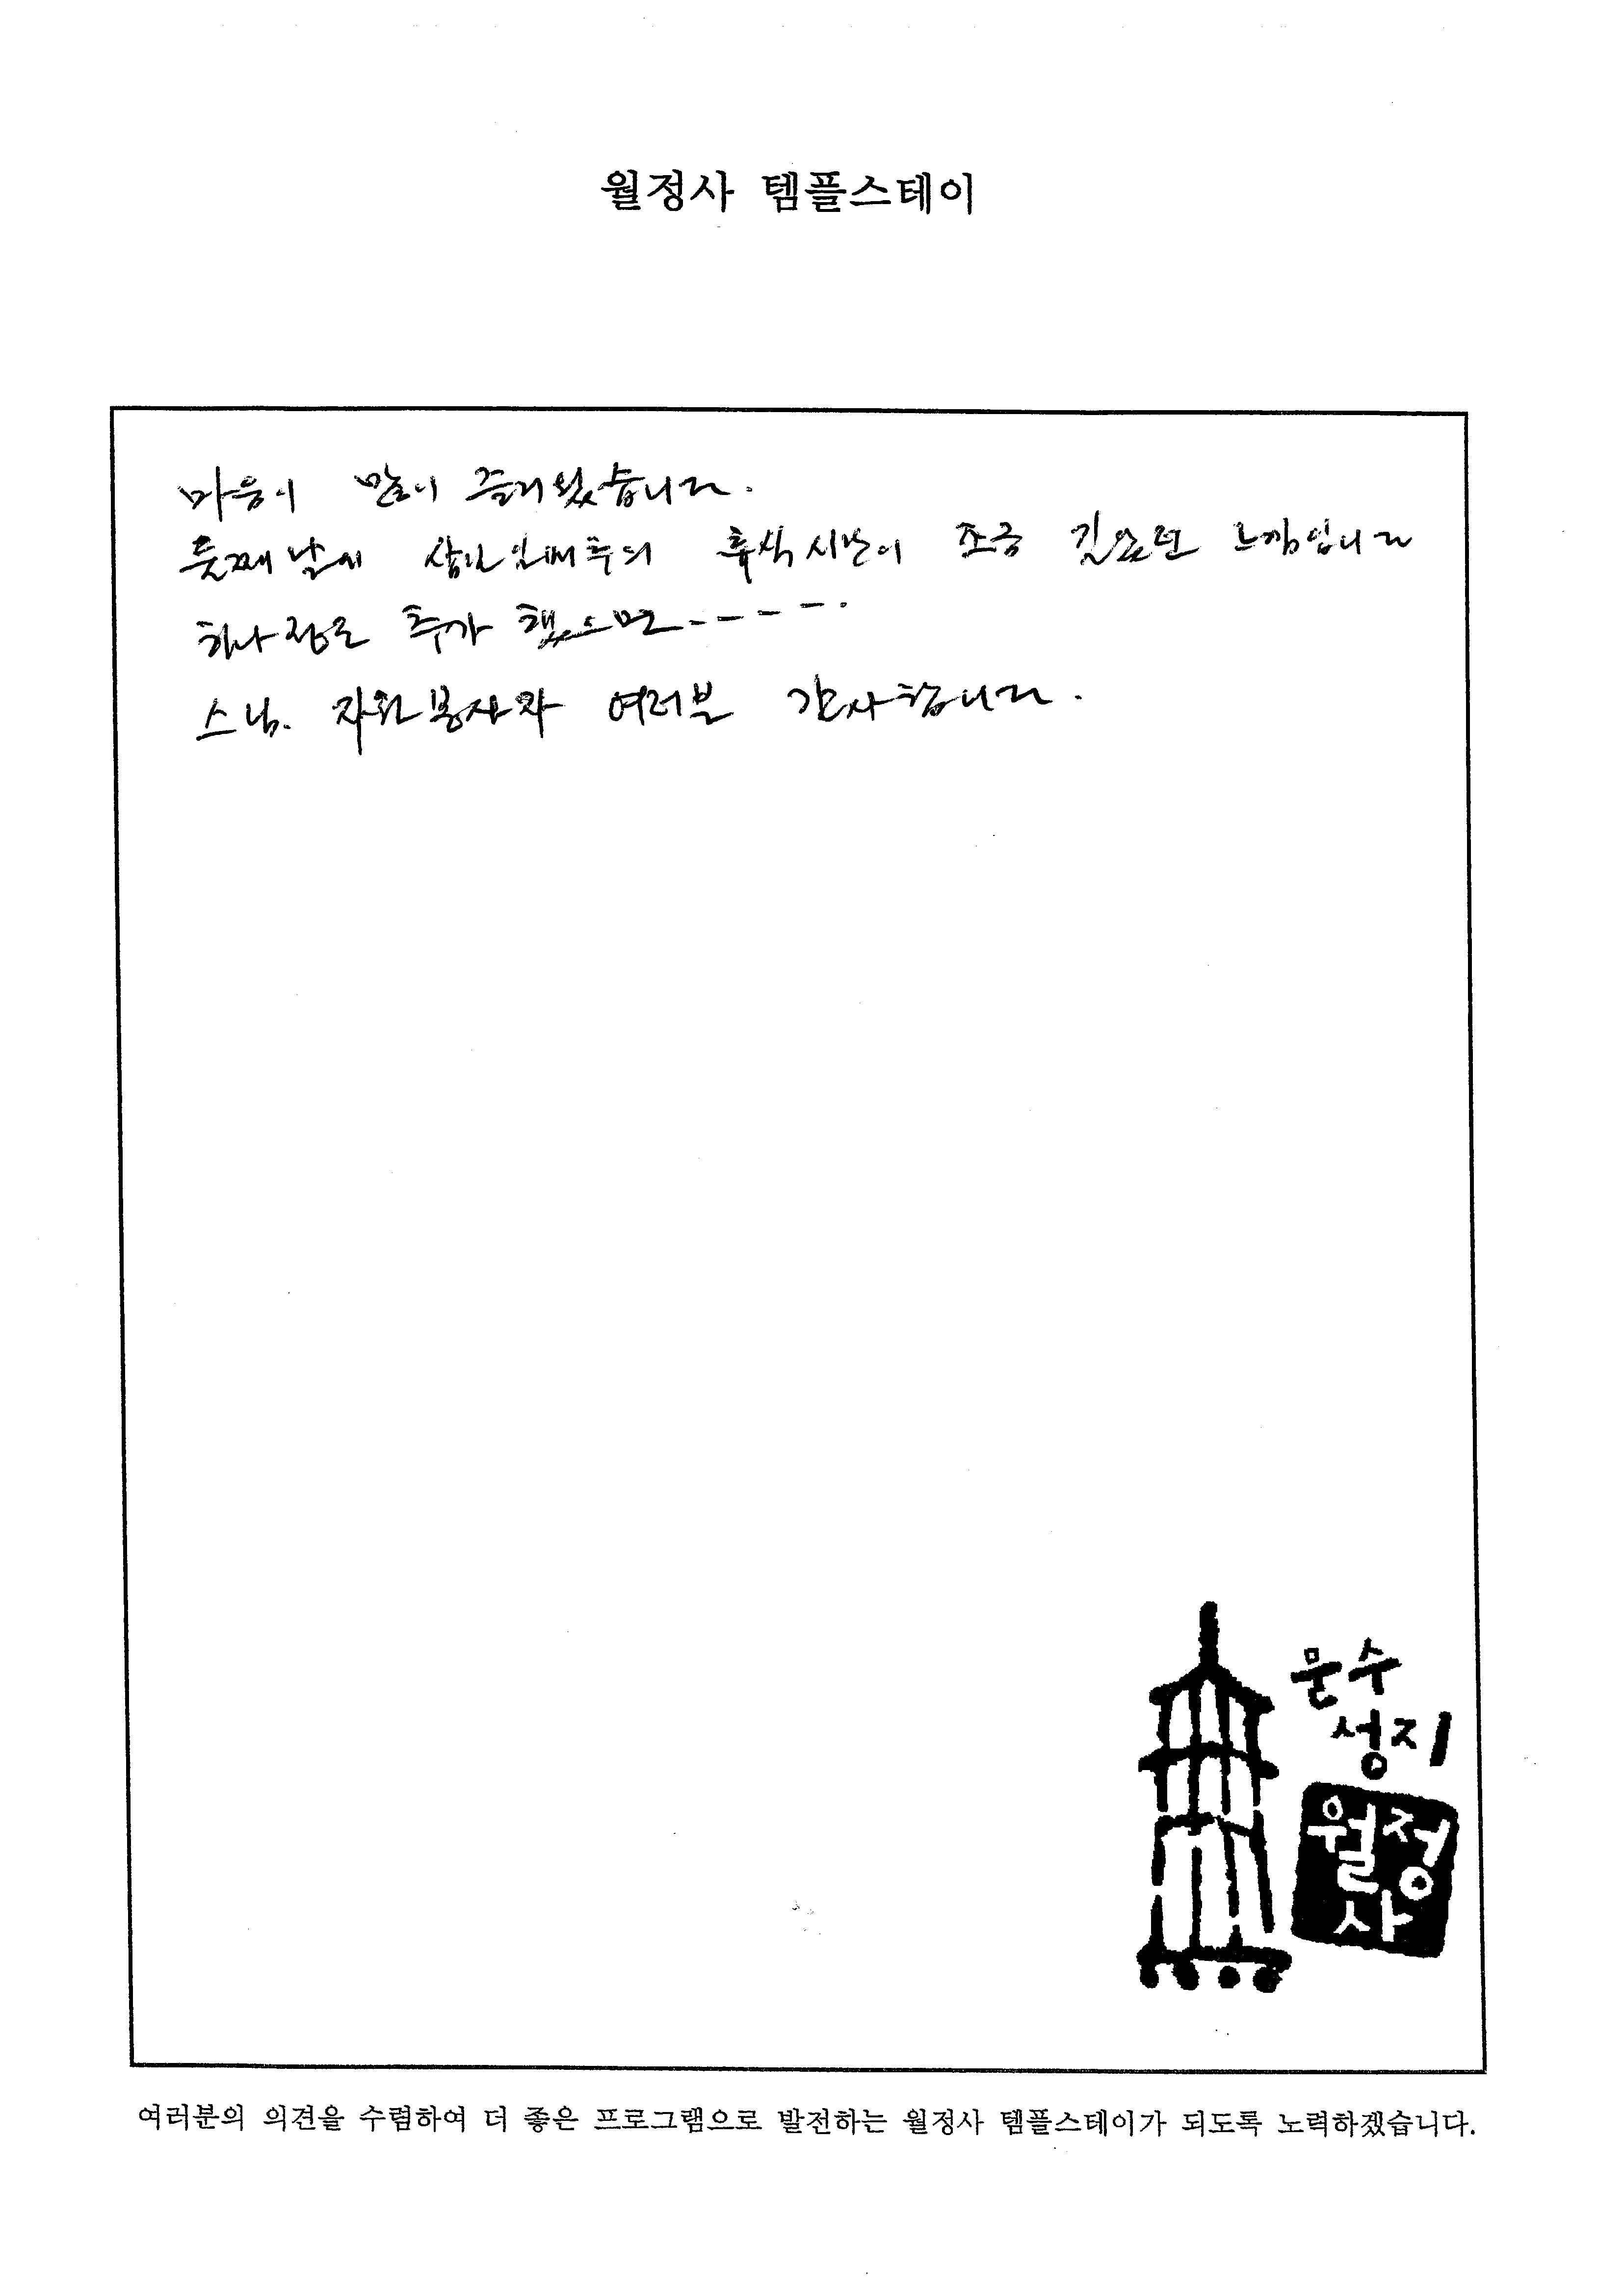 월정사 템플스테이
마음이 많이 즐거웠습니다.
둘째날에 휴식시간이 조금 길었던 느낌입니다
하나정도 추가 했으면-----.
스님. 자원봉사자 여러분 감사합니다.
문수
성지
월정
사
여러분의 의견을 수렴하여 더 좋은 프로그램으로 발전하는 월정사 템플스테이가 되도록 노력하겠습니다.